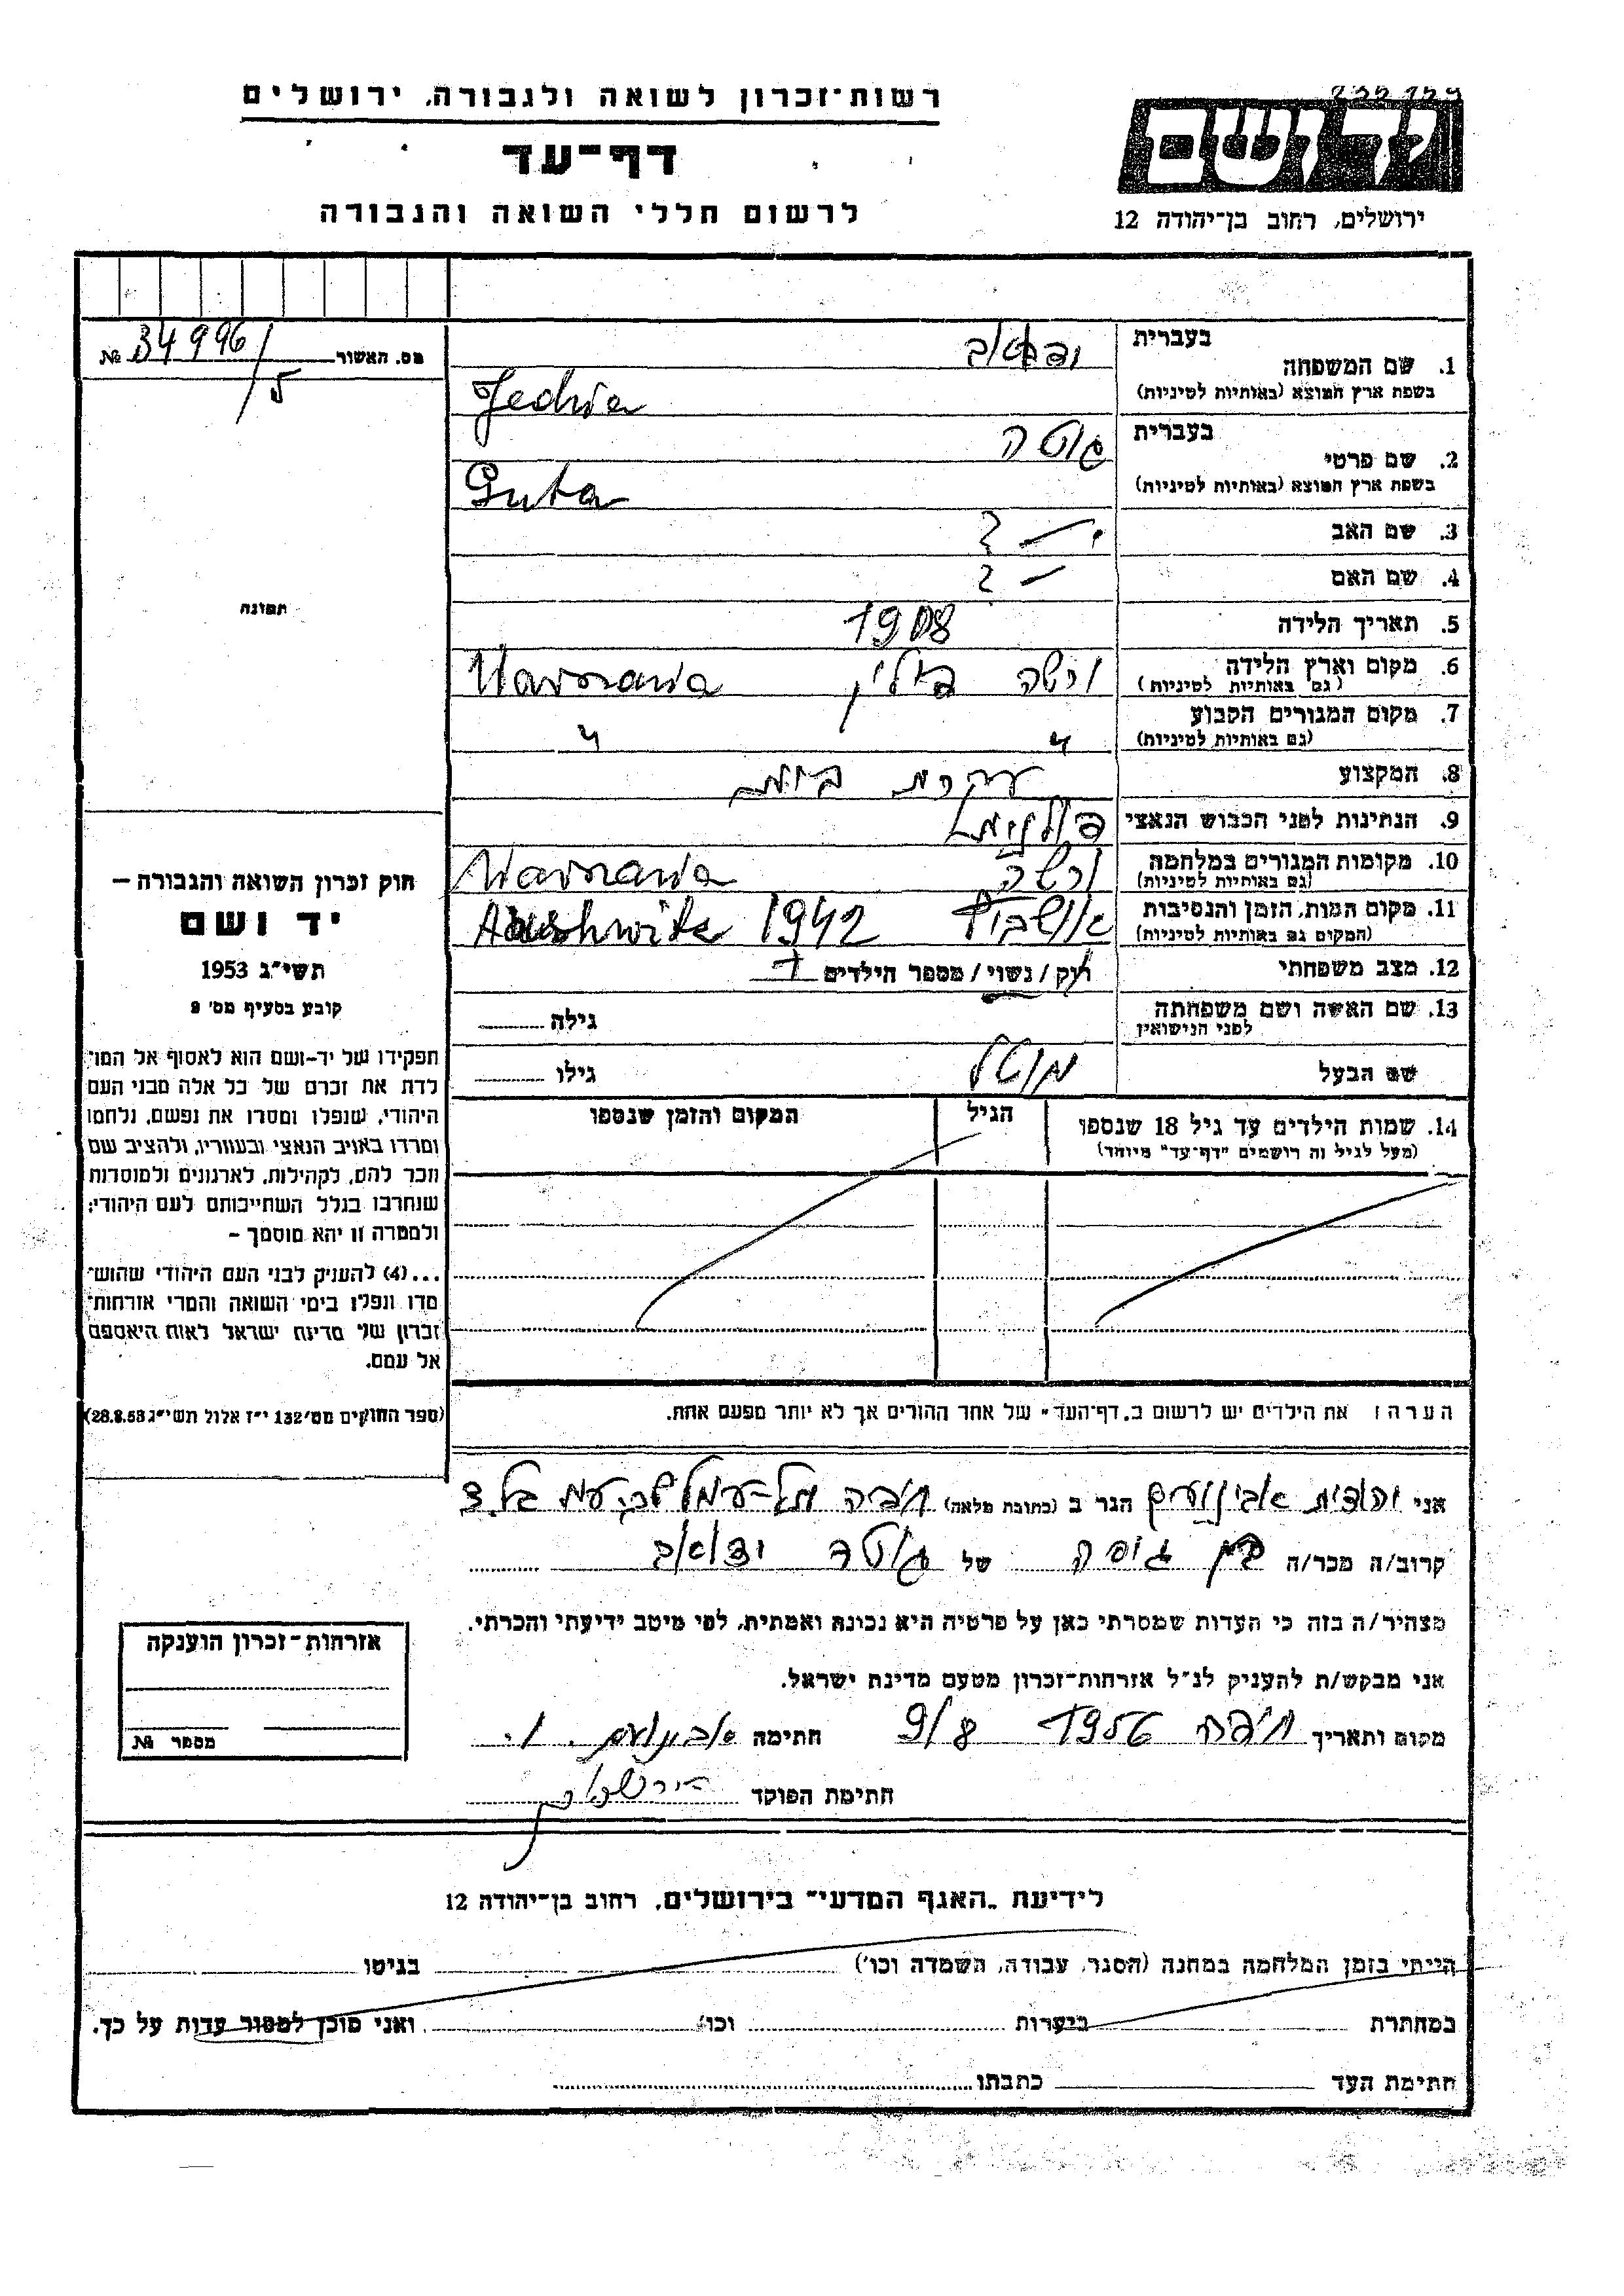 רשות־זכרון לשואה ולגבורה, ירושלים
דף־עד
לרשום חללי השואה והגבורה
יד ושם
ירושלים, רחוב בן־יהודה 12
מס. האשור № 34996/5
תמונה
בעברית
1. שם המשפחה
בשפת ארץ המוצא (באותיות לטיניות)
בעברית גוטה
2. שם פרטי
בשפת ארץ המוצא (באותיות לטיניות) Guta
3. שם האב — ?
4. שם האם — ?
5. תאריך הלידה 1908
6. מקום וארץ הלידה ורשה פולין Warszawa
(גם באותיות לטיניות)
7. מקום המגורים הקבוע " "
(גם באותיות לטיניות)
8. המקצוע עקרת בית
9. הנתינות לפני הכבוש הנאצי פולנית
10. מקומות המגורים במלחמה ורשה Warszawa
(גם באותיות לטיניות)
11. מקום המות, הזמן והנסיבות אושביץ 1942 Aushwitz
(המקום גם באותיות לטיניות)
12. מצב משפחתי רוק / נשוי / מספר הילדים
13. שם האשה ושם משפחתה גילה
לפני הנישואין
שם הבעל מוטל גילו
14. שמות הילדים עד גיל 18 שנספו הגיל המקום והזמן שנספו
(מעל לגיל זה רושמים "דף־עד" מיוחד)
חוק זכרון השואה והגבורה –
יד ושם
תשי״ג 1953
קובע בסעיף מס׳ 2
תפקידו של יד־ושם הוא לאסוף אל המו־
לדת את זכרם של כל אלה מבני העם
היהודי, שנפלו ומסרו את נפשם, נלחמו
ומרדו באויב הנאצי ובעוזריו, ולהציב שם
וזכר להם, לקהילות, לארגונים ולמוסדות
שנחרבו בגלל השתייכותם לעם היהודי;
ולמטרה זו יהא מוסמך –
...(4) להעניק לבני העם היהודי שהוש־
מדו ונפלו בימי השואה והמרי אזרחות־
זכרון של מדינת ישראל לאות היאספם
אל עמם.
(ספר החוקים מס׳ 132 י״ז אלול תשי״ג 28.8.53)
הערה: את הילדים יש לרשום ב„דף־העד" של אחד ההורים אך לא יותר מפעם אחת.
אני יהודית אבינועם הגר ב (כתובת מלאה) חיפה תל־עמל
קרוב/ה מכר/ה של גוטה
מצהיר/ה בזה כי העדות שמסרתי כאן על פרטיה היא נכונה ואמתית, לפי מיטב ידיעתי והכרתי.
אני מבקש/ת להעניק לנ״ל אזרחות־זכרון מטעם מדינת ישראל.
מקום ותאריך חיפה 1956 9/8 חתימה אבינועם י.
חתימת הפוקד
אזרחות־זכרון הוענקה
מספר №
לידיעת „האגף המדעי" בירושלים, רחוב בן־יהודה 12
הייתי בזמן המלחמה במחנה (הסגר, עבודה, השמדה וכו׳) בגיטו
במחתרת ביערות וכו׳ ואני מוכן למסור עדות על כך.
חתימת העד כתבתו